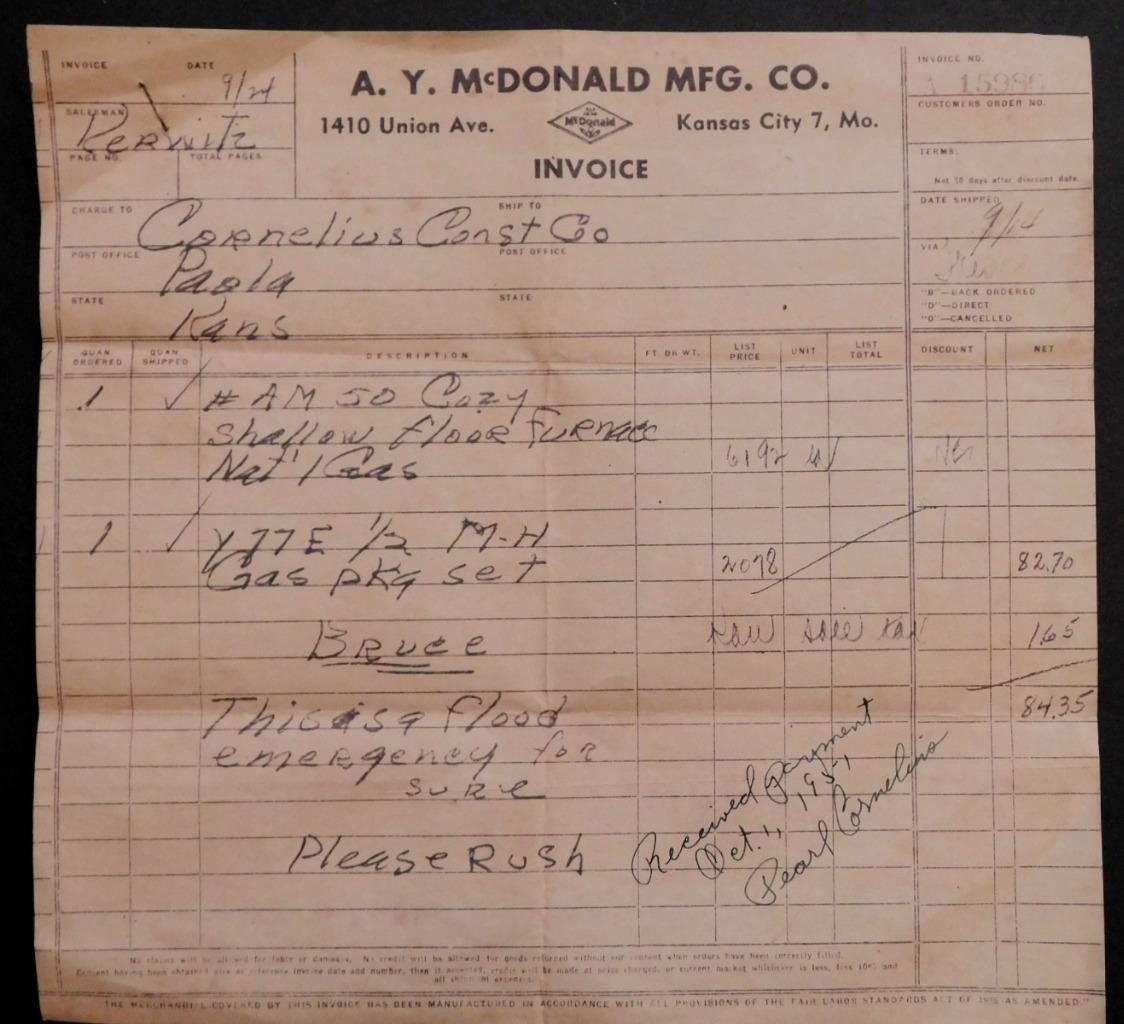 INVOICE DATE
9/24
SALESMAN
PAGE NO. TOTAL PAGES
A. Y. McDONALD MFG. CO.
1410 Union Ave. McDonald Kansas City 7, Mo.
INVOICE
INVOICE NO.
A 15986
CUSTOMERS ORDER NO.
TERMS:
Net 30 days after discount date.
DATE SHIPPED
9/14
VIA
"B"—BACK ORDERED
"D"—DIRECT
"O"—CANCELLED
CHARGE TO SHIP TO
Cornelius Const Co
POST OFFICE POST OFFICE
Paola
STATE STATE
Kans
QUAN ORDERED QUAN SHIPPED DESCRIPTION FT. OR WT. LIST PRICE UNIT LIST TOTAL DISCOUNT NET
1 ✓ # AM 50 Cozy
Shallow floor furnace
Nat'l Gas 6192 Net
1 ✓ Y77E 1/2 M-H
Gas pkg set 2078 82.70
Bruce sale tax 1.65
This is a flood 84.35
emergency for
sure
Please Rush
Received payment
Oct. 1, 1951
Pearl Cornelius
No claims will be allowed for labor or damage. No credit will be allowed for goods returned without our consent when orders have been correctly filled.
Consent having been obtained give as reference invoice date and number, then if accepted, credit will be made at price charged, or current market whichever is less, less 10% and
all shipping expenses.
THE MERCHANDISE COVERED BY THIS INVOICE HAS BEEN MANUFACTURED IN ACCORDANCE WITH ALL PROVISIONS OF THE FAIR LABOR STANDARDS ACT OF 1938 AS AMENDED."